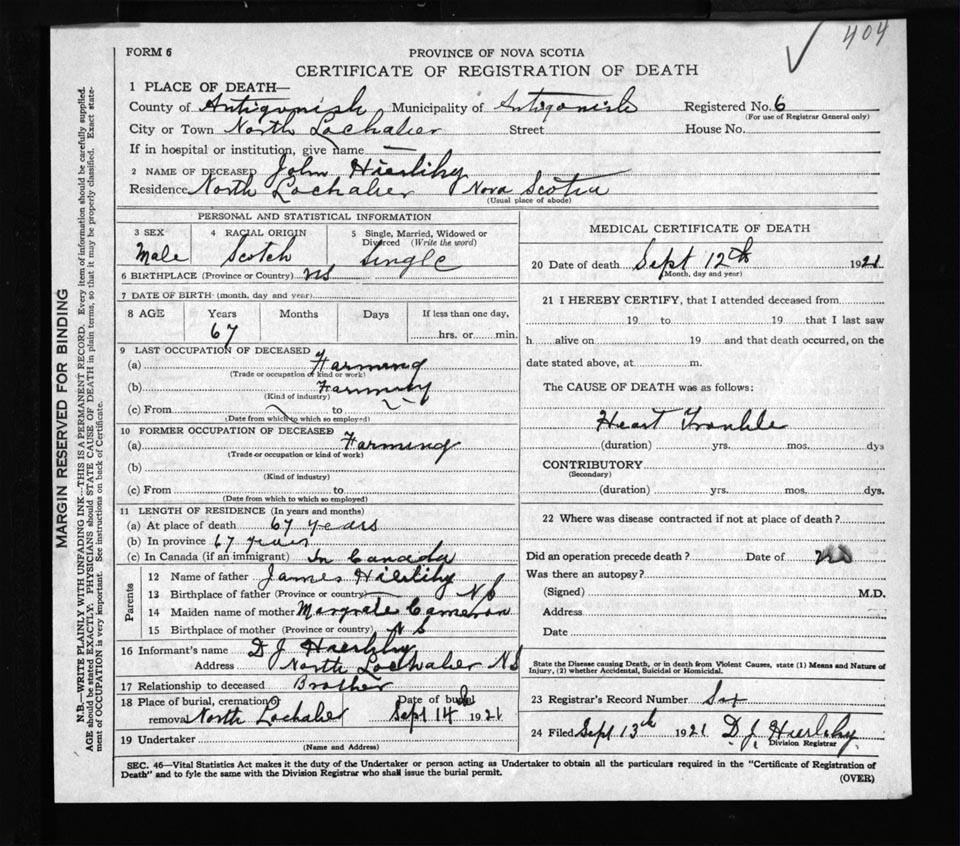 404
FORM 6
PROVINCE OF NOVA SCOTIA
CERTIFICATE OF REGISTRATION OF DEATH
1 PLACE OF DEATH—
County of Antigonish Municipality of Antigonish Registered No. 6
(For use of Registrar General only)
City or Town North Lochaber Street House No.
If in hospital or institution, give name —
2 NAME OF DECEASED John Hierlihy
Residence North Lochaber Nova Scotia
(Usual place of abode)
PERSONAL AND STATISTICAL INFORMATION
3 SEX 4 RACIAL ORIGIN 5 Single, Married, Widowed or
Divorced (Write the word)
Male Scotch Single
6 BIRTHPLACE (Province or Country) NS
7 DATE OF BIRTH (month, day and year)
8 AGE Years Months Days If less than one day,
67 hrs. or min.
9 LAST OCCUPATION OF DECEASED
(a) Farming
(Trade or occupation or kind or work)
(b) Farming
(Kind of industry)
(c) From to
(Date from which to which so employed)
10 FORMER OCCUPATION OF DECEASED
(a) Farming
(Trade or occupation or kind of work)
(b)
(Kind of industry)
(c) From to
(Date from which to which so employed)
11 LENGTH OF RESIDENCE (In years and months)
(a) At place of death 67 years
(b) In province 67 years
(c) In Canada (if an immigrant) In Canada
Parents
12 Name of father James Hierlihy
13 Birthplace of father (Province or country) NS
14 Maiden name of mother Margrate Cameron
15 Birthplace of mother (Province or country) NS
16 Informant's name D J Hierlihy
Address North Lochaber NS
17 Relationship to deceased Brother
18 Place of burial, cremation or Date of burial
removal North Lochaber Sept 14 1921
19 Undertaker
(Name and Address)
MEDICAL CERTIFICATE OF DEATH
20 Date of death Sept 12th 1921
(Month, day and year)
21 I HEREBY CERTIFY, that I attended deceased from
19 to 19 that I last saw
h alive on 19 and that death occurred, on the
date stated above, at m.
The CAUSE OF DEATH was as follows:
Heart Trouble
(duration) yrs. mos. dys
CONTRIBUTORY
(Secondary)
(duration) yrs. mos. dys.
22 Where was disease contracted if not at place of death?
Did an operation precede death? Date of no
Was there an autopsy?
(Signed) M.D.
Address
Date
State the Disease causing Death, or in death from Violent Causes, state (1) Means and Nature of
Injury, (2) whether Accidental, Suicidal or Homicidal.
23 Registrar's Record Number Six
24 Filed Sept 13th 1921 D. J. Hierlihy
Division Registrar
SEC. 46—Vital Statistics Act makes it the duty of the Undertaker or person acting as Undertaker to obtain all the particulars required in the "Certificate of Registration of
Death" and to fyle the same with the Division Registrar who shall issue the burial permit.
(OVER)
MARGIN RESERVED FOR BINDING
N.B.—WRITE PLAINLY WITH UNFADING INK—THIS IS A PERMANENT RECORD. Every item of information should be carefully supplied.
AGE should be stated EXACTLY. PHYSICIANS should STATE CAUSE OF DEATH in plain terms, so that it may be properly classified. Exact state-
ment of OCCUPATION is very important. See instructions on back of Certificate.